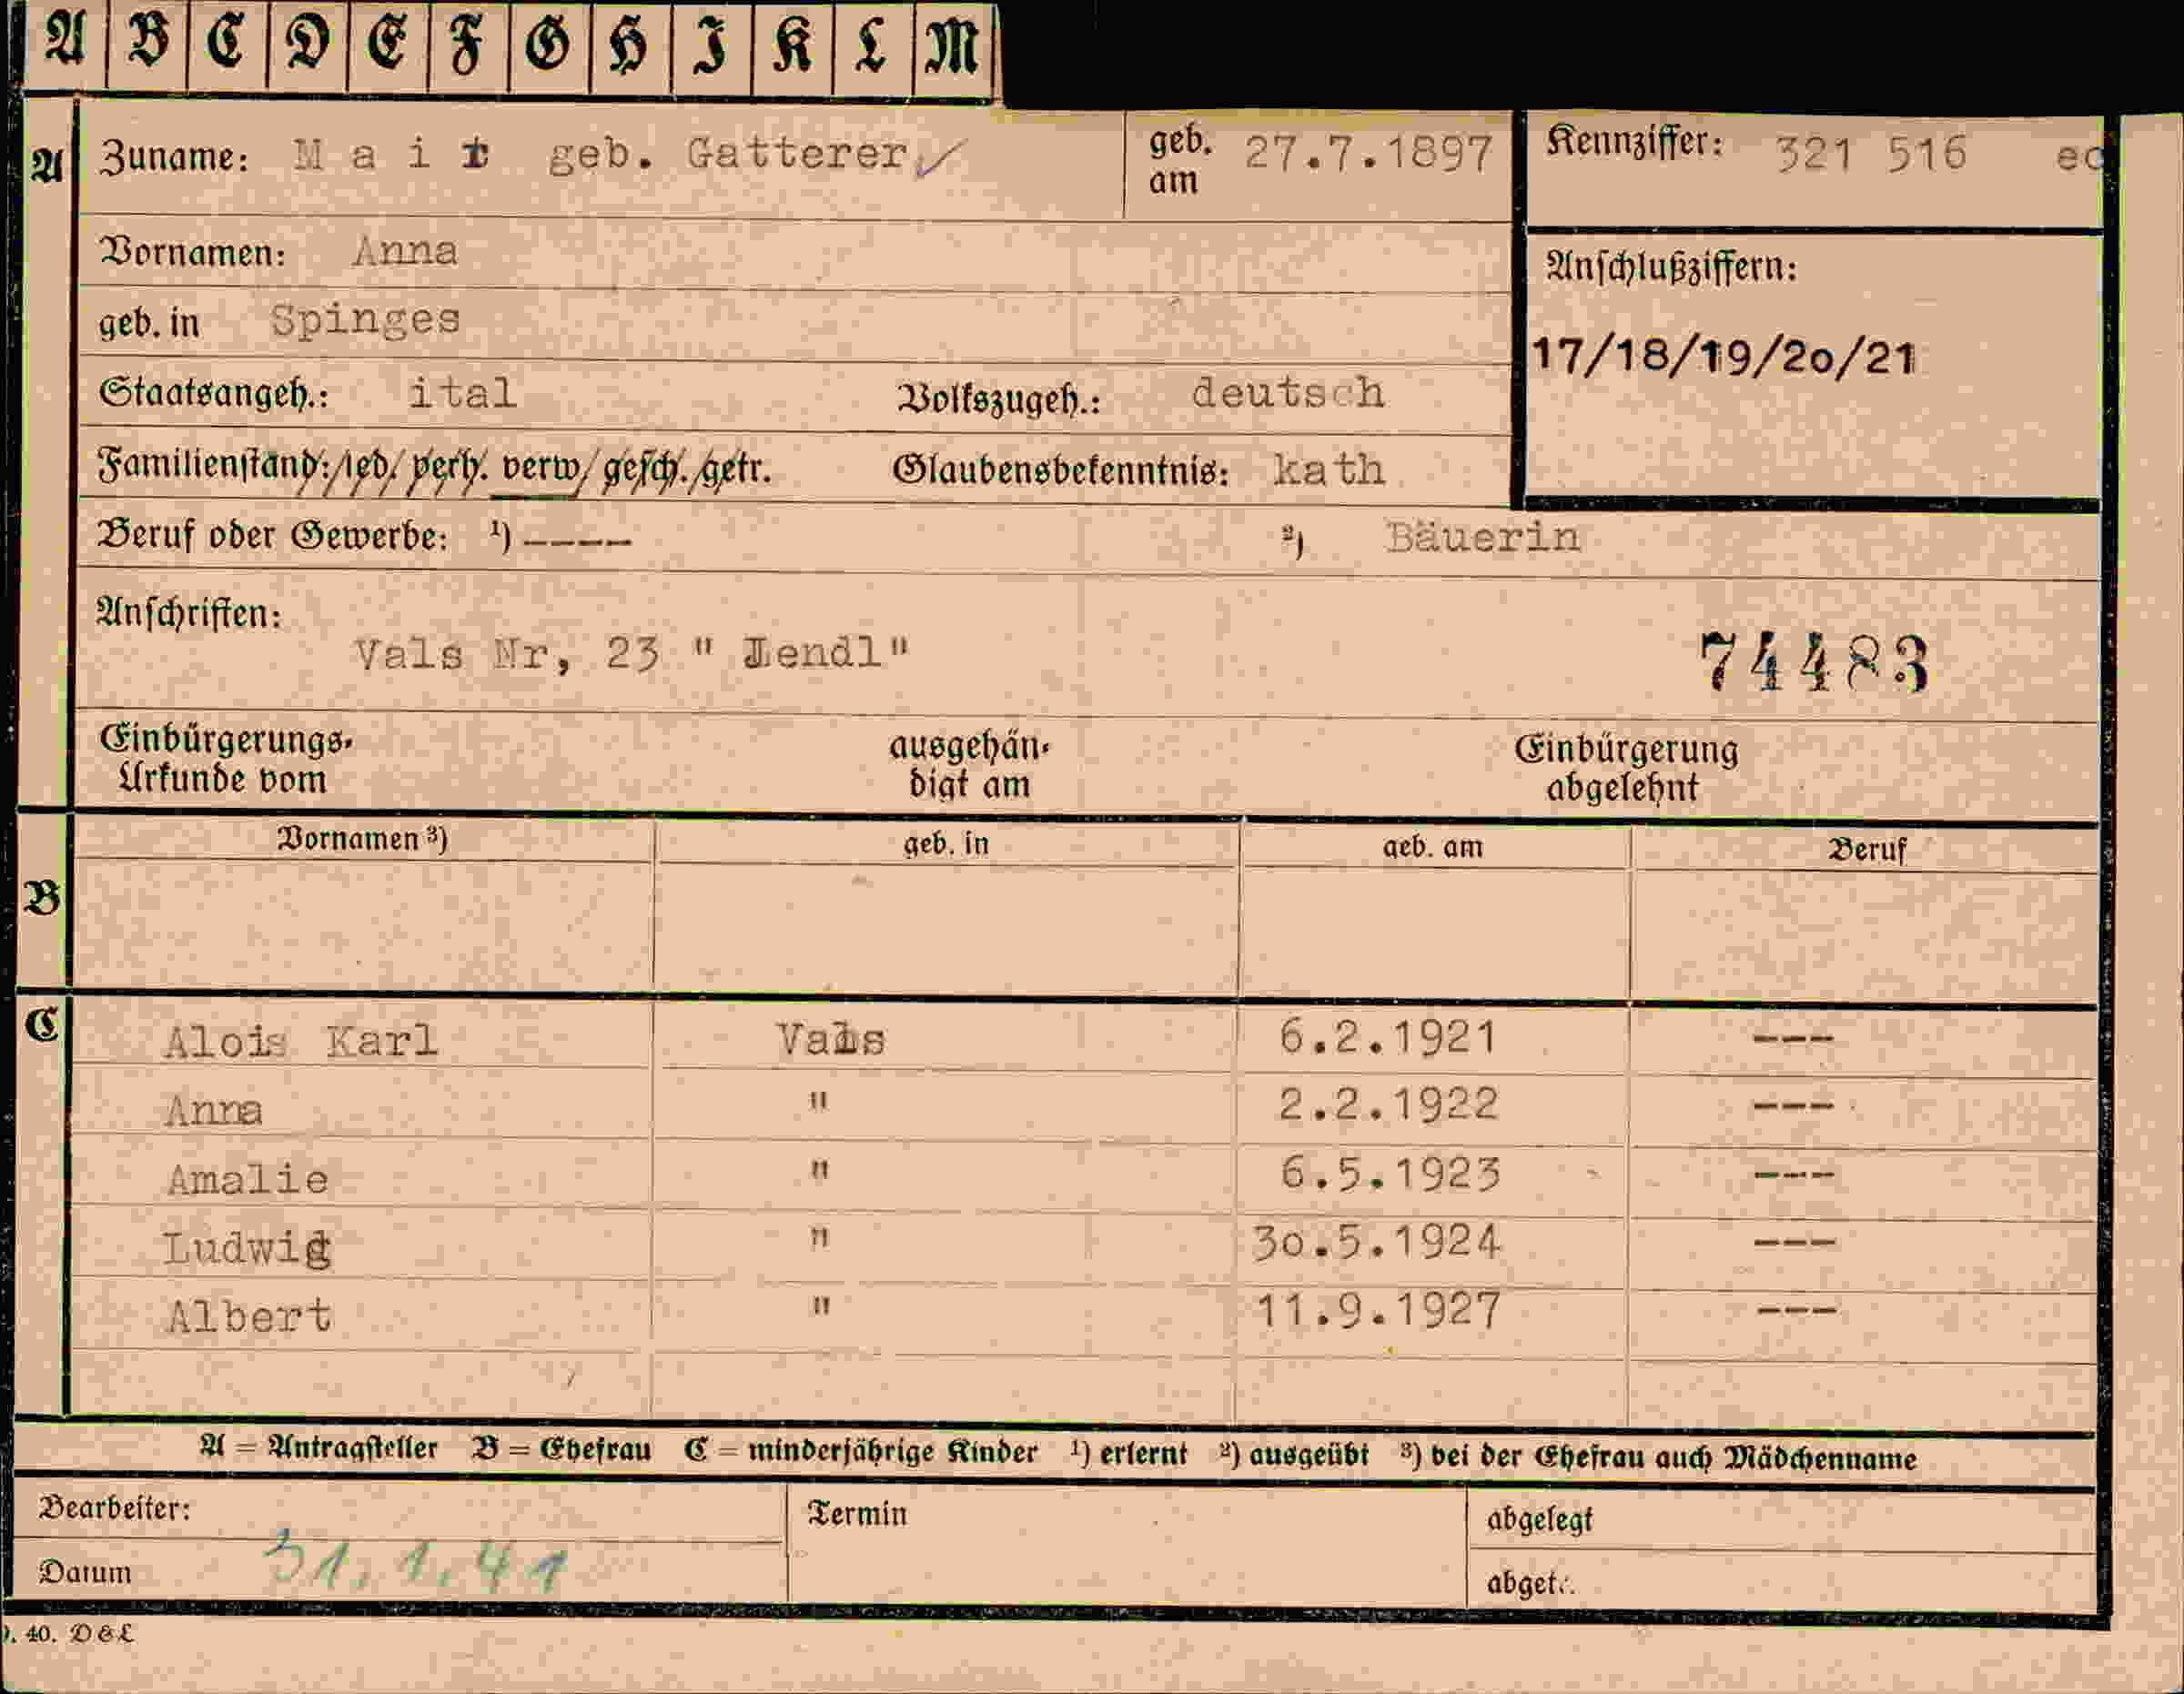 A B C D E F G H I K L M
A Zuname: M a i r geb. Gatterer geb. am 27.7.1897 Kennziffer: 321 516 ec
Vornamen: Anna
Anschlußziffern:
geb. in Spinges
17/18/19/2o/21
Staatsangeh.: ital Volkszugeh.: deutsch
Familienstand: led. verh. verw. gesch. getr. Glaubensbekenntnis: kath
Beruf oder Gewerbe: ¹) ---- ²) Bäuerin
Anschriften:
Vals Nr, 23 " Lendl"
74483
Einbürgerungs-Urkunde vom ausgehän-digt am Einbürgerung abgelehnt
Vornamen ³) geb. in geb. am Beruf
B
C Alois Karl Vals 6.2.1921 ---
Anna " 2.2.1922 ---
Amalie " 6.5.1923 ---
Ludwig " 3o.5.1924 ---
Albert " 11.9.1927 ---
A = Antragsteller B = Ehefrau C = minderjährige Kinder ¹) erlernt ²) ausgeübt ³) bei der Ehefrau auch Mädchenname
Bearbeiter: Termin abgelegt
Datum 31.1.41 abget.:
40. D & L